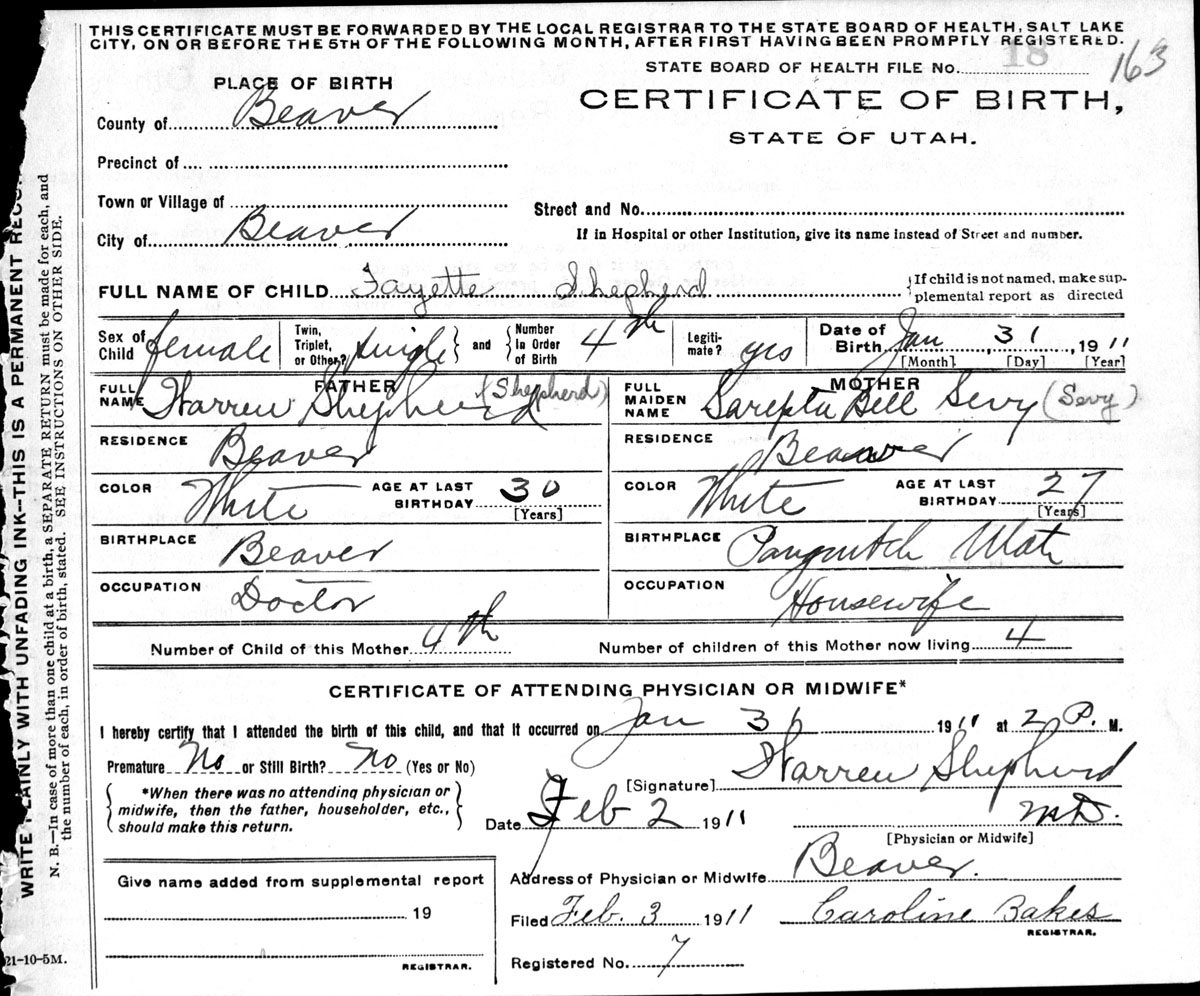 THIS CERTIFICATE MUST BE FORWARDED BY THE LOCAL REGISTRAR TO THE STATE BOARD OF HEALTH, SALT LAKE
CITY, ON OR BEFORE THE 5TH OF THE FOLLOWING MONTH, AFTER FIRST HAVING BEEN PROMPTLY REGISTERED.
STATE BOARD OF HEALTH FILE NO. 18 163
PLACE OF BIRTH
CERTIFICATE OF BIRTH,
STATE OF UTAH.
County of Beaver
Precinct of
Town or Village of
Street and No.
City of Beaver
If in Hospital or other Institution, give its name instead of Street and number.
FULL NAME OF CHILD Fayette Shepherd
{If child is not named, make sup-
plemental report as directed
Sex of Child female
Twin, Triplet, or Other? single } and { Number In Order of Birth 4th
Legiti-mate? yes
Date of Birth Jan, 31, 1911
[Month] [Day] [Year]
FATHER
FULL NAME Warren Shepherd (Shepherd)
MOTHER
FULL MAIDEN NAME Sarepta Bell Sevy (Sevy)
RESIDENCE Beaver
RESIDENCE Beaver
COLOR White AGE AT LAST BIRTHDAY 30 [Years]
COLOR White AGE AT LAST BIRTHDAY 27 [Years]
BIRTHPLACE Beaver
BIRTHPLACE Panguitch Utah
OCCUPATION Doctor
OCCUPATION Housewife
Number of Child of this Mother 4th Number of children of this Mother now living 4
CERTIFICATE OF ATTENDING PHYSICIAN OR MIDWIFE*
I hereby certify that I attended the birth of this child, and that it occurred on Jan 31 1911 at 2 P. M.
Premature No or Still Birth? No (Yes or No)
[Signature] Warren Shepherd
{ *When there was no attending physician or
midwife, then the father, householder, etc.,
should make this return. }
Date Feb 2 1911 M.D.
[Physician or Midwife]
Address of Physician or Midwife Beaver.
Give name added from supplemental report
19
REGISTRAR.
Filed Feb. 3 1911 Caroline Bakes
REGISTRAR.
Registered No. 7
WRITE PLAINLY WITH UNFADING INK—THIS IS A PERMANENT RECO
N. B.—In case of more than one child at a birth, a SEPARATE RETURN must be made for each, and
the number of each, in order of birth, stated. SEE INSTRUCTIONS ON OTHER SIDE.
21-10-5M.